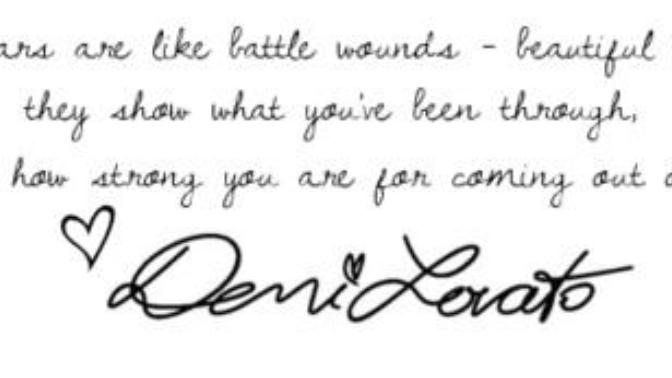 ars are like battle wounds - beautiful
they show what you've been through,
how strong you are for coming out
Demi Lovato